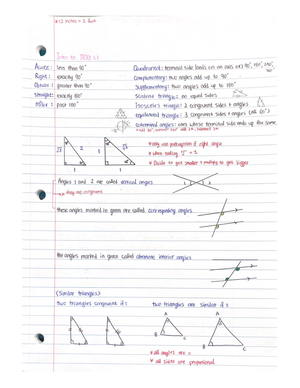 *12 inches = 1 foot
Intro to TRIG 2.1
Acute: less than 90°
Right: exactly 90°
Obtuse: greater than 90°
Straight: exactly 180°
Reflex: past 180°
Quadrantal: terminal side lands on an axis ex) 90°, 180°, 270°, 360°
Complementary: two angles add up to 90°
Supplementary: two angles add up to 180°
Scalene triangle: no equal sides
Isosceles triangle: 2 congruent sides + angles
equilateral triangle: 3 congruent sides + angles (all 60°)
coterminal angles: ones whose terminal side ends up the same
*only use pythagorean if right angle
*when taking
* Divide to get smaller + multiply to get bigger
Angles 1 and 2 are called vertical angles.
they are congruent
these angles marked in green are called corresponding angles
the angles marked in green called alternate interior angles
(Similar triangles)
two triangles congruent if:
two triangles are similar if:
A
A
B
C
B
C
* all angles are =
* all sides are proportional